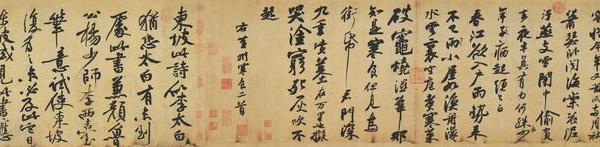 蕭瑟卧聞海棠花泥
汙燕支雪闇中偷負
去夜半真有力何殊少
年子病起頭已白
春江欲入戶雨勢來
不已雨小屋如漁舟濛濛
水雲裏空庖煮寒菜
破竈燒濕葦那
知是寒食但見烏
銜帋君門深
九重墳墓在万里也擬
哭塗窮死灰吹不
起
右黄州寒食二首
東坡此詩似李太白
猶恐太白有未到
處此書兼顏魯
公楊少師李西臺
筆意試使東坡
復為之未必及此它日
東坡或見此書應